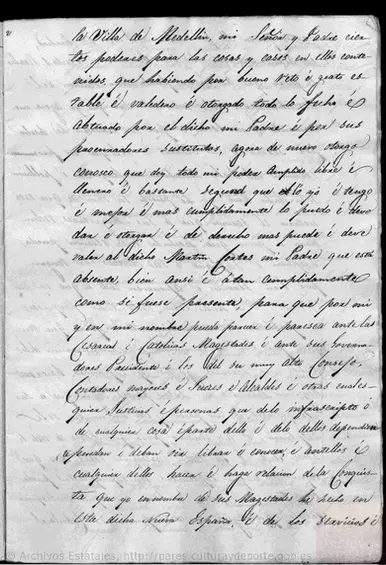 la Villa de Medellin, mi Señor y Padre cier
tos poderes para las cosas y casos en ellos conte
nidos, que habiendo por bueno reto é grato es
table é valedero é otorgado todo lo fecho é
abturado por el dicho mi Padre é por sus
procuradores sustitutos, agora de nuevo otorgo
conosco que doy todo mi poder cumplido libre é
llenero é bastante segund que yo lo hé é tengo
é mejor é mas cumplidamente lo puedo é devo
dar é otorgar é de derecho mas puede é deve
valer al dicho Martin Cortes mi Padre que está
absente, bien ansi é á tan cumplidamente
como si fuese presente, para que por mi
y en mi nombre pueda parecer é paresca ante las
Cesareas é Catolicas Magestades é ante sus Governa
dores Presidente é los del su muy Alto Consejo,
Contadores mayores é Jueces é Alcaldes é otras cuales
quier Justicias é personas que de lo infrascripto é
de cualquier cosa é parte dello é de lo dello dependiente
puedan é deban oir librar é conocer, é ante ellos é
cualquier dellos hacer é haga relacion de la Conquis
ta que yo en nombre de sus Magestades he hecho en
esta dicha Nueva España, é de los servicios é
© Archivos Estatales, http://pares.culturaydeporte.gob.es